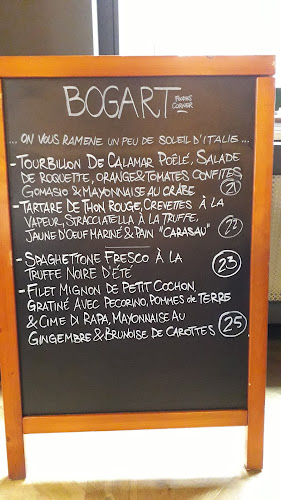 BOGART FOODIES CORNER
... ON VOUS RAMENE UN PEU DE SOLEIL D'ITALIE...
- TOURBILLON DE CALAMAR POÊLÉ, SALADE
DE ROQUETTE, ORANGE & TOMATES CONFITES
GOMASIO & MAYONNAISE AU CRABE 21
- TARTARE DE THON ROUGE, CREVETTES À LA
VAPEUR, STRACCIATELLA À LA TRUFFE,
JAUNE D'OEUF MARINÉ & PAIN "CARASAU" 22
- SPAGHETTONE FRESCO À LA
TRUFFE NOIRE D'ÉTÉ 23
- FILET MIGNON DE PETIT COCHON,
GRATINÉ AVEC PECORINO, POMMES DE TERRE
& CIME DI RAPA, MAYONNAISE AU
GINGEMBRE & BRUNOISE DE CAROTTES 25